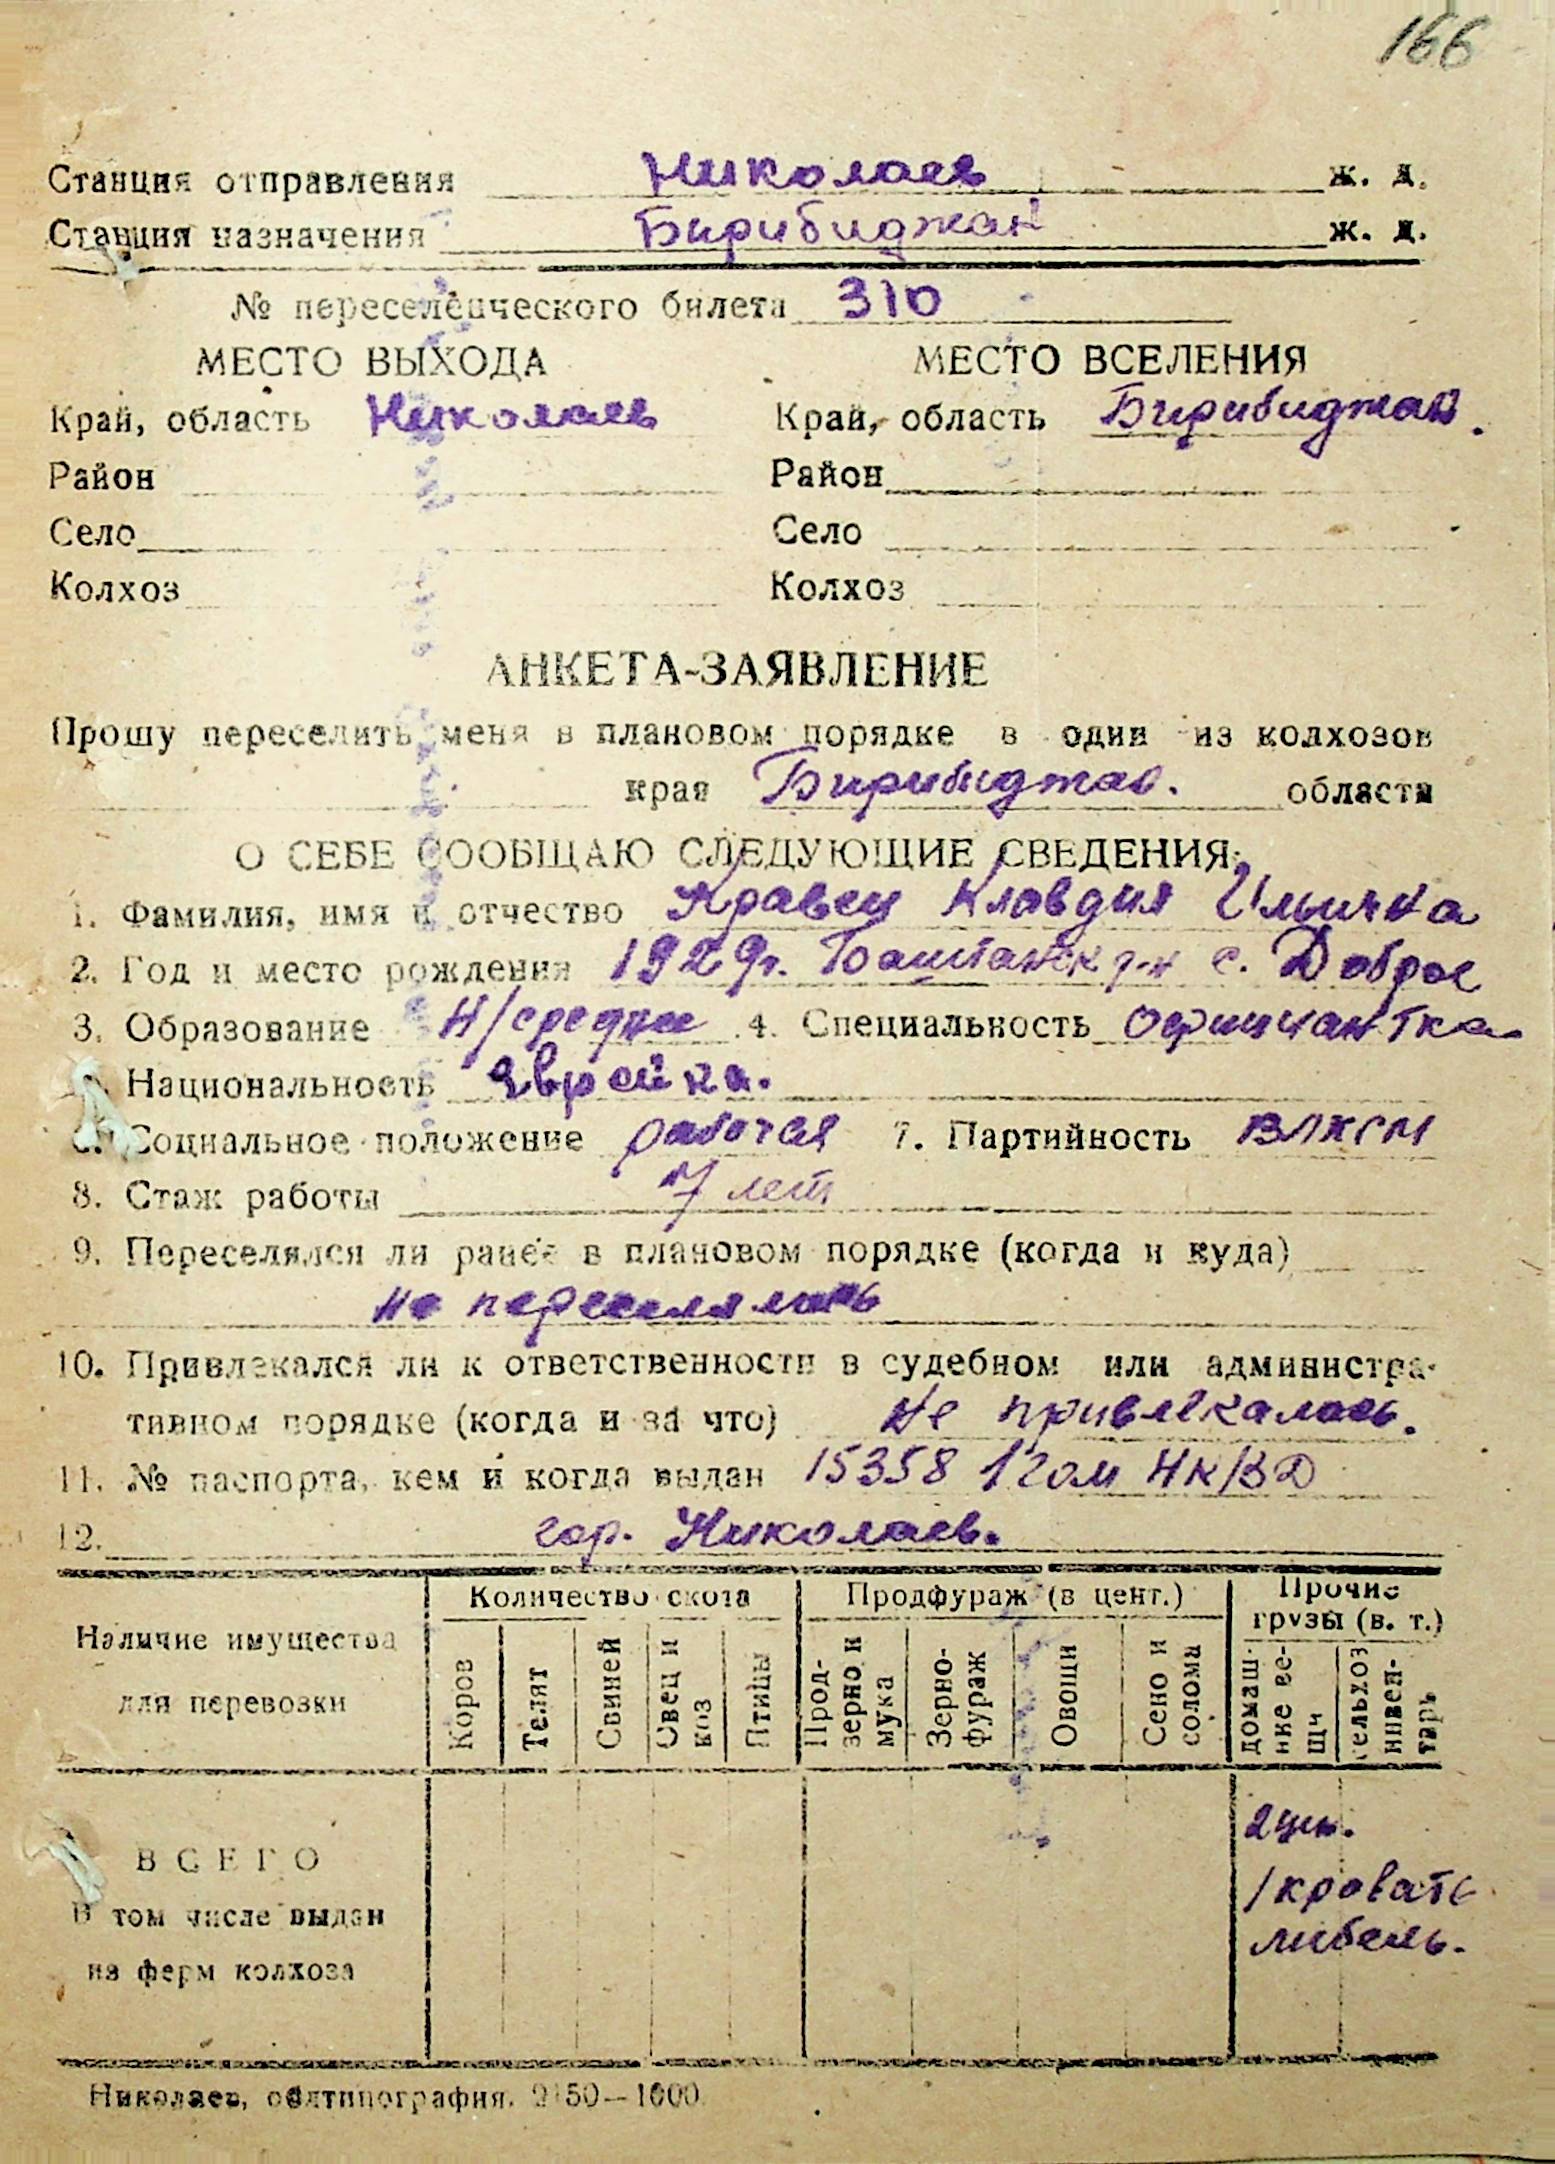 166
Станция отправления Николаев ж. д.
Станция назначения Биробиджан ж. д.
№ переселенческого билета 310
МЕСТО ВЫХОДА МЕСТО ВСЕЛЕНИЯ
Край, область Николаев Край, область Биробиджан.
Район Район
Село Село
Колхоз Колхоз
АНКЕТА-ЗАЯВЛЕНИЕ
Прошу переселить меня в плановом порядке в один из колхозов
края Биробиджан. области
О СЕБЕ СООБЩАЮ СЛЕДУЮЩИЕ СВЕДЕНИЯ:
1. Фамилия, имя и отчество Кравец Клавдия Ильична
2. Год и место рождения 1929г. Баштанск р-н с. Доброе
3. Образование Н/среднее 4. Специальность официантка
Национальность еврейка.
6. Социальное положение рабочая 7. Партийность ВЛКСМ
8. Стаж работы 7 лет
9. Переселялся ли ранее в плановом порядке (когда и куда)
не переселялась
10. Привлекался ли к ответственности в судебном или администра-
тивном порядке (когда и за что) Не привлекалась.
11. № паспорта, кем и когда выдан 15358 1 гом НК/ВД
12. гор. Николаев.
Количество скота Продфураж (в цент.) Прочие
грузы (в. т.)
Наличие имущества
для перевозки
Коров Телят Свиней Овец и коз Птицы Прод-зерно и мука Зерно-фураж Овощи Сено и солома домаш-ние ве-щи сельхоз инвен-тарь
2 цн.
ВСЕГО 1 кровать
В том числе выдан
на ферм колхоза
Николаев, облтипография. 2150—1000